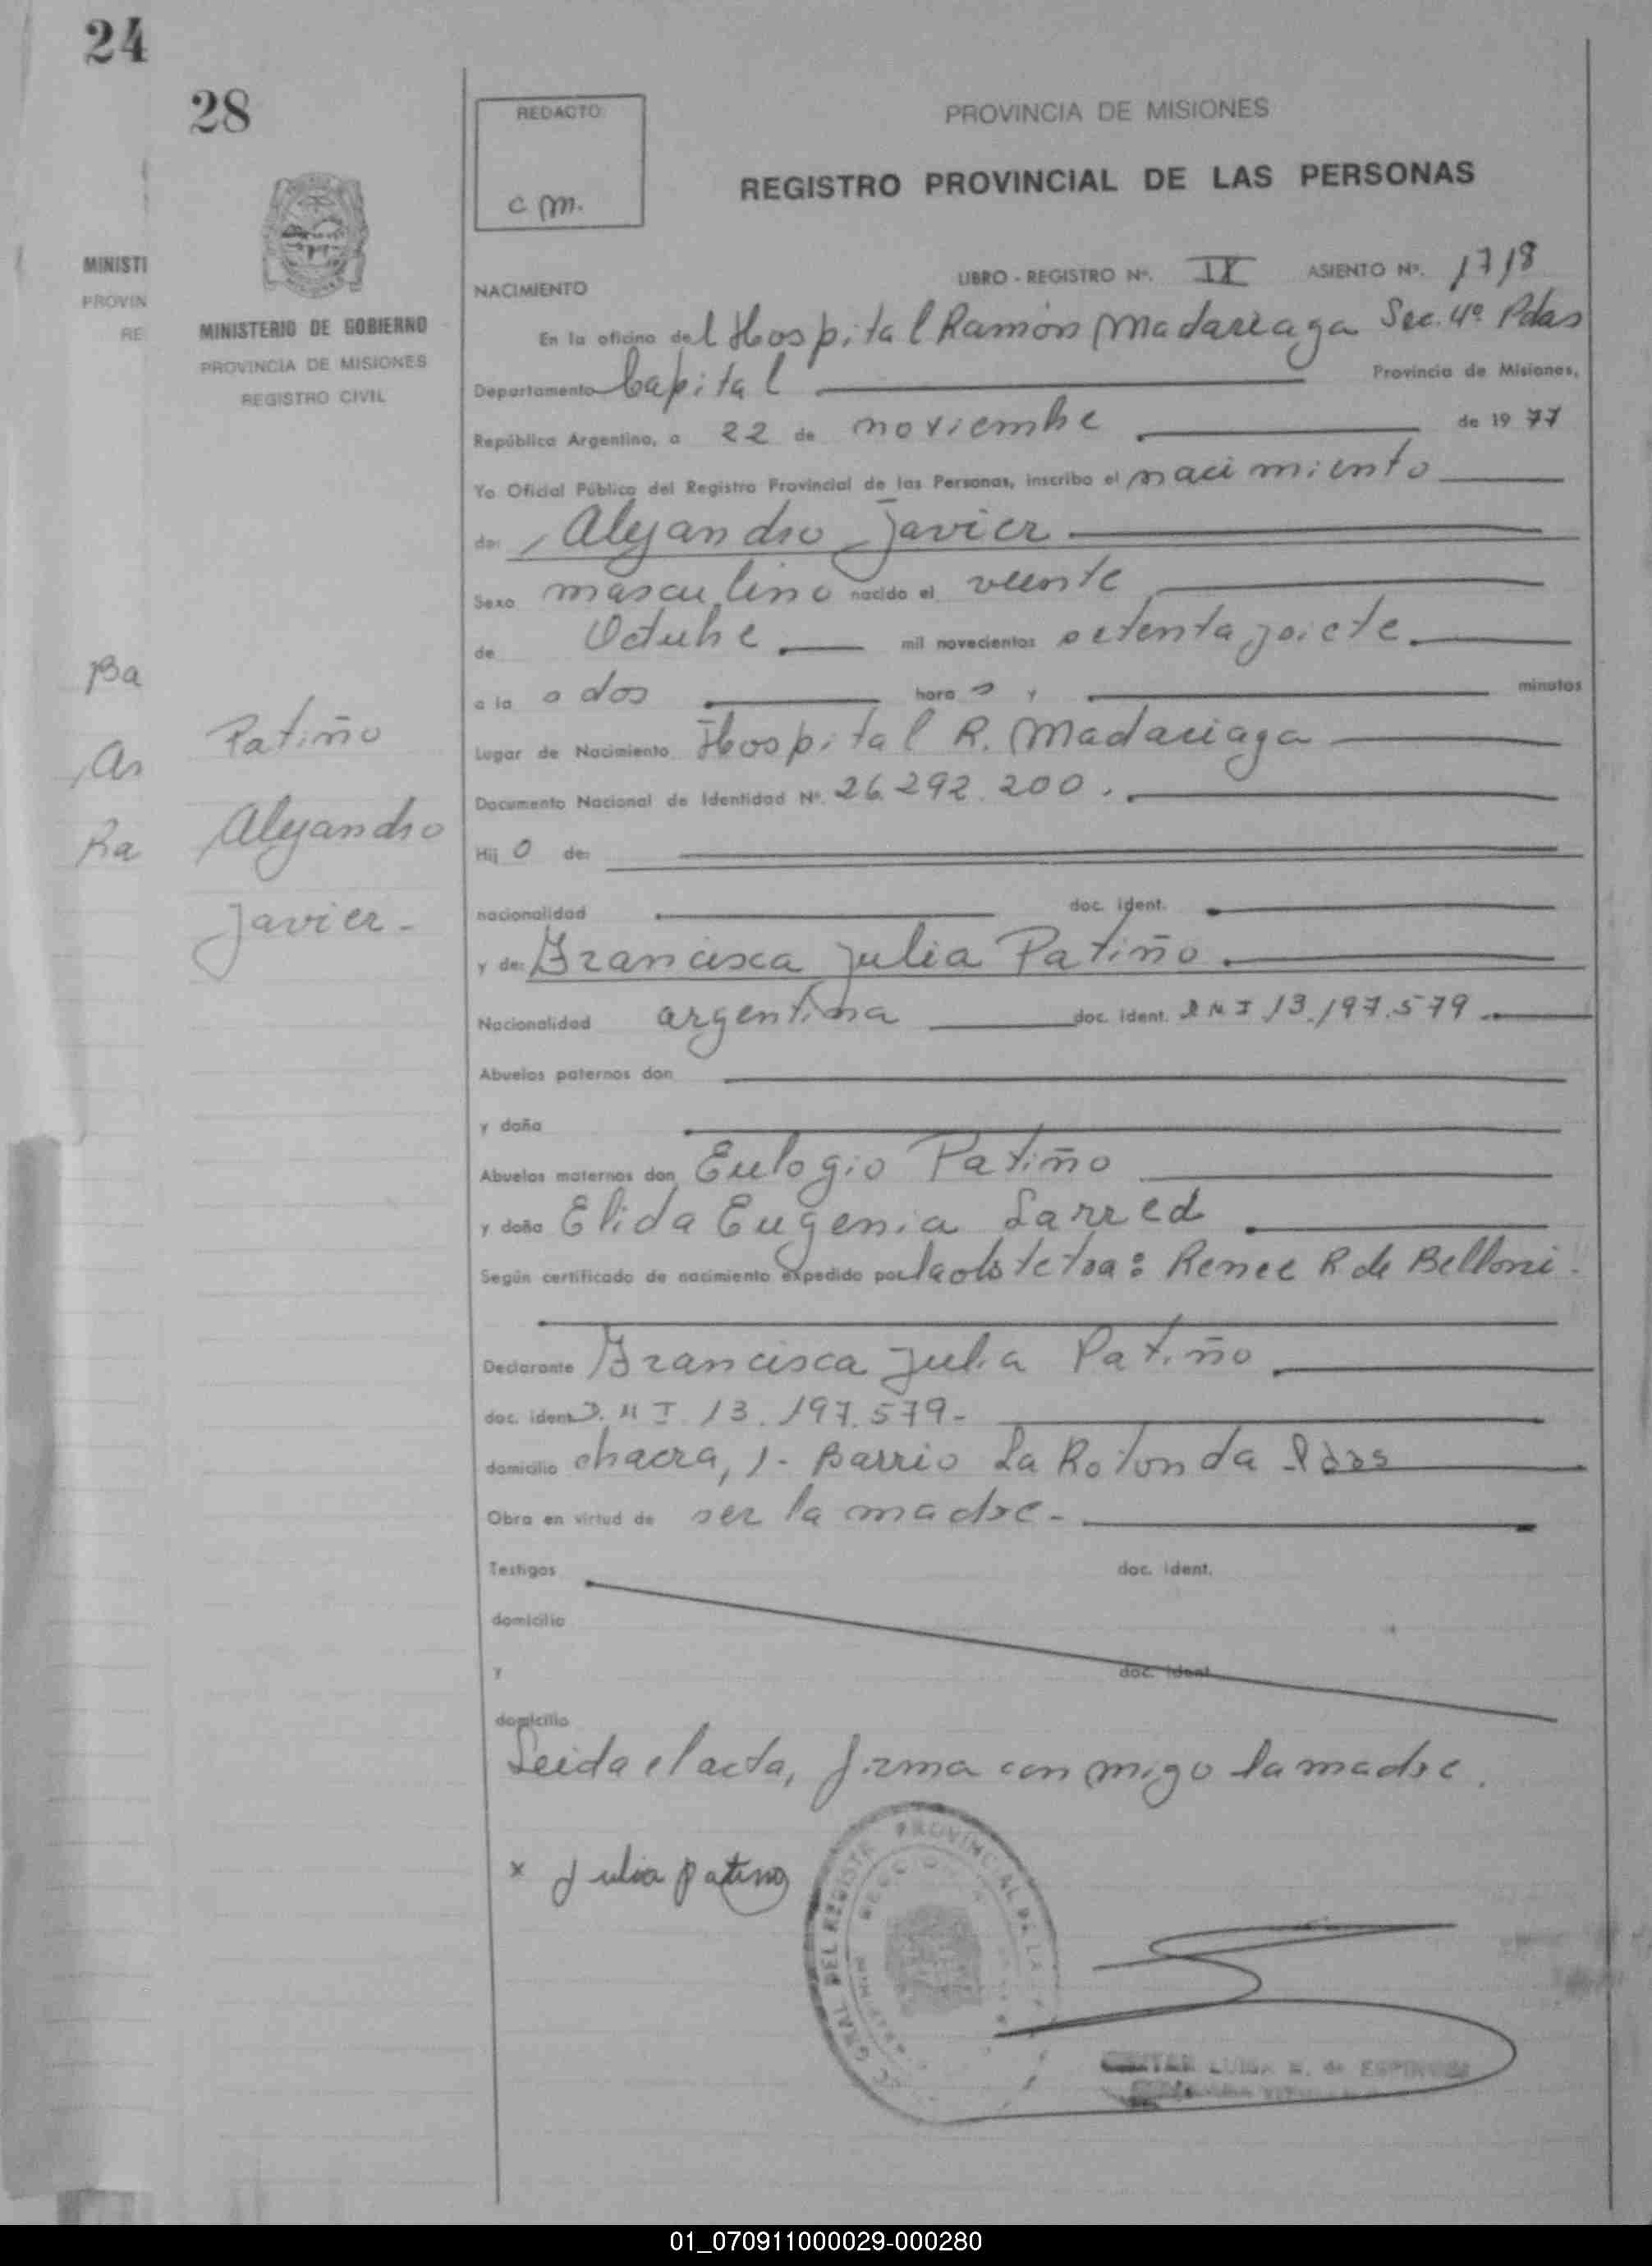 24
28
REDACTO:
c m.
PROVINCIA DE MISIONES
REGISTRO PROVINCIAL DE LAS PERSONAS
MINISTI
PROVIN
RE
MINISTERIO DE GOBIERNO
PROVINCIA DE MISIONES
REGISTRO CIVIL
NACIMIENTO
LIBRO - REGISTRO Nº. IX ASIENTO Nº. 1718
En la oficina del Hospital Ramón Madariaga Sec. 4º Pdas
Departamento Capital Provincia de Misiones,
República Argentina, a 22 de noviembre de 19 77
Yo Oficial Público del Registro Provincial de las Personas, inscribo el nacimiento
de: Alejandro Javier
Sexo masculino nacido el veinte
de Octubre mil novecientos setenta y siete.
a la s dos hora s y minutos
Lugar de Nacimiento Hospital R. Madariaga
Documento Nacional de Identidad Nº. 26.292.200.
Hij o de:
nacionalidad doc. ident.
y de: Francisca Julia Patiño.
Nacionalidad argentina doc. ident. DNI 13.197.579
Abuelos paternos don
y doña
Abuelos maternos don Eulogio Patiño
y doña Elida Eugenia Larred
Según certificado de nacimiento expedido por la obstetra: Renee R de Belloni.
Declarante Francisca Julia Patiño
doc. ident. D.N I. 13.197.579-
domicilio chacra, 1- Barrio La Rotonda Pdas
Obra en virtud de ser la madre-
Testigos doc. ident.
domicilio
y doc. ident.
domicilio
Leida el acta, firma con migo la madre.
x Julia patino
GRAL DEL REGISTR PROVINCIAL DE LA
LUISA E. de ESPINOZA
Ba
Patiño
Ar
Alejandro
Ra
Javier-
01_070911000029-000280